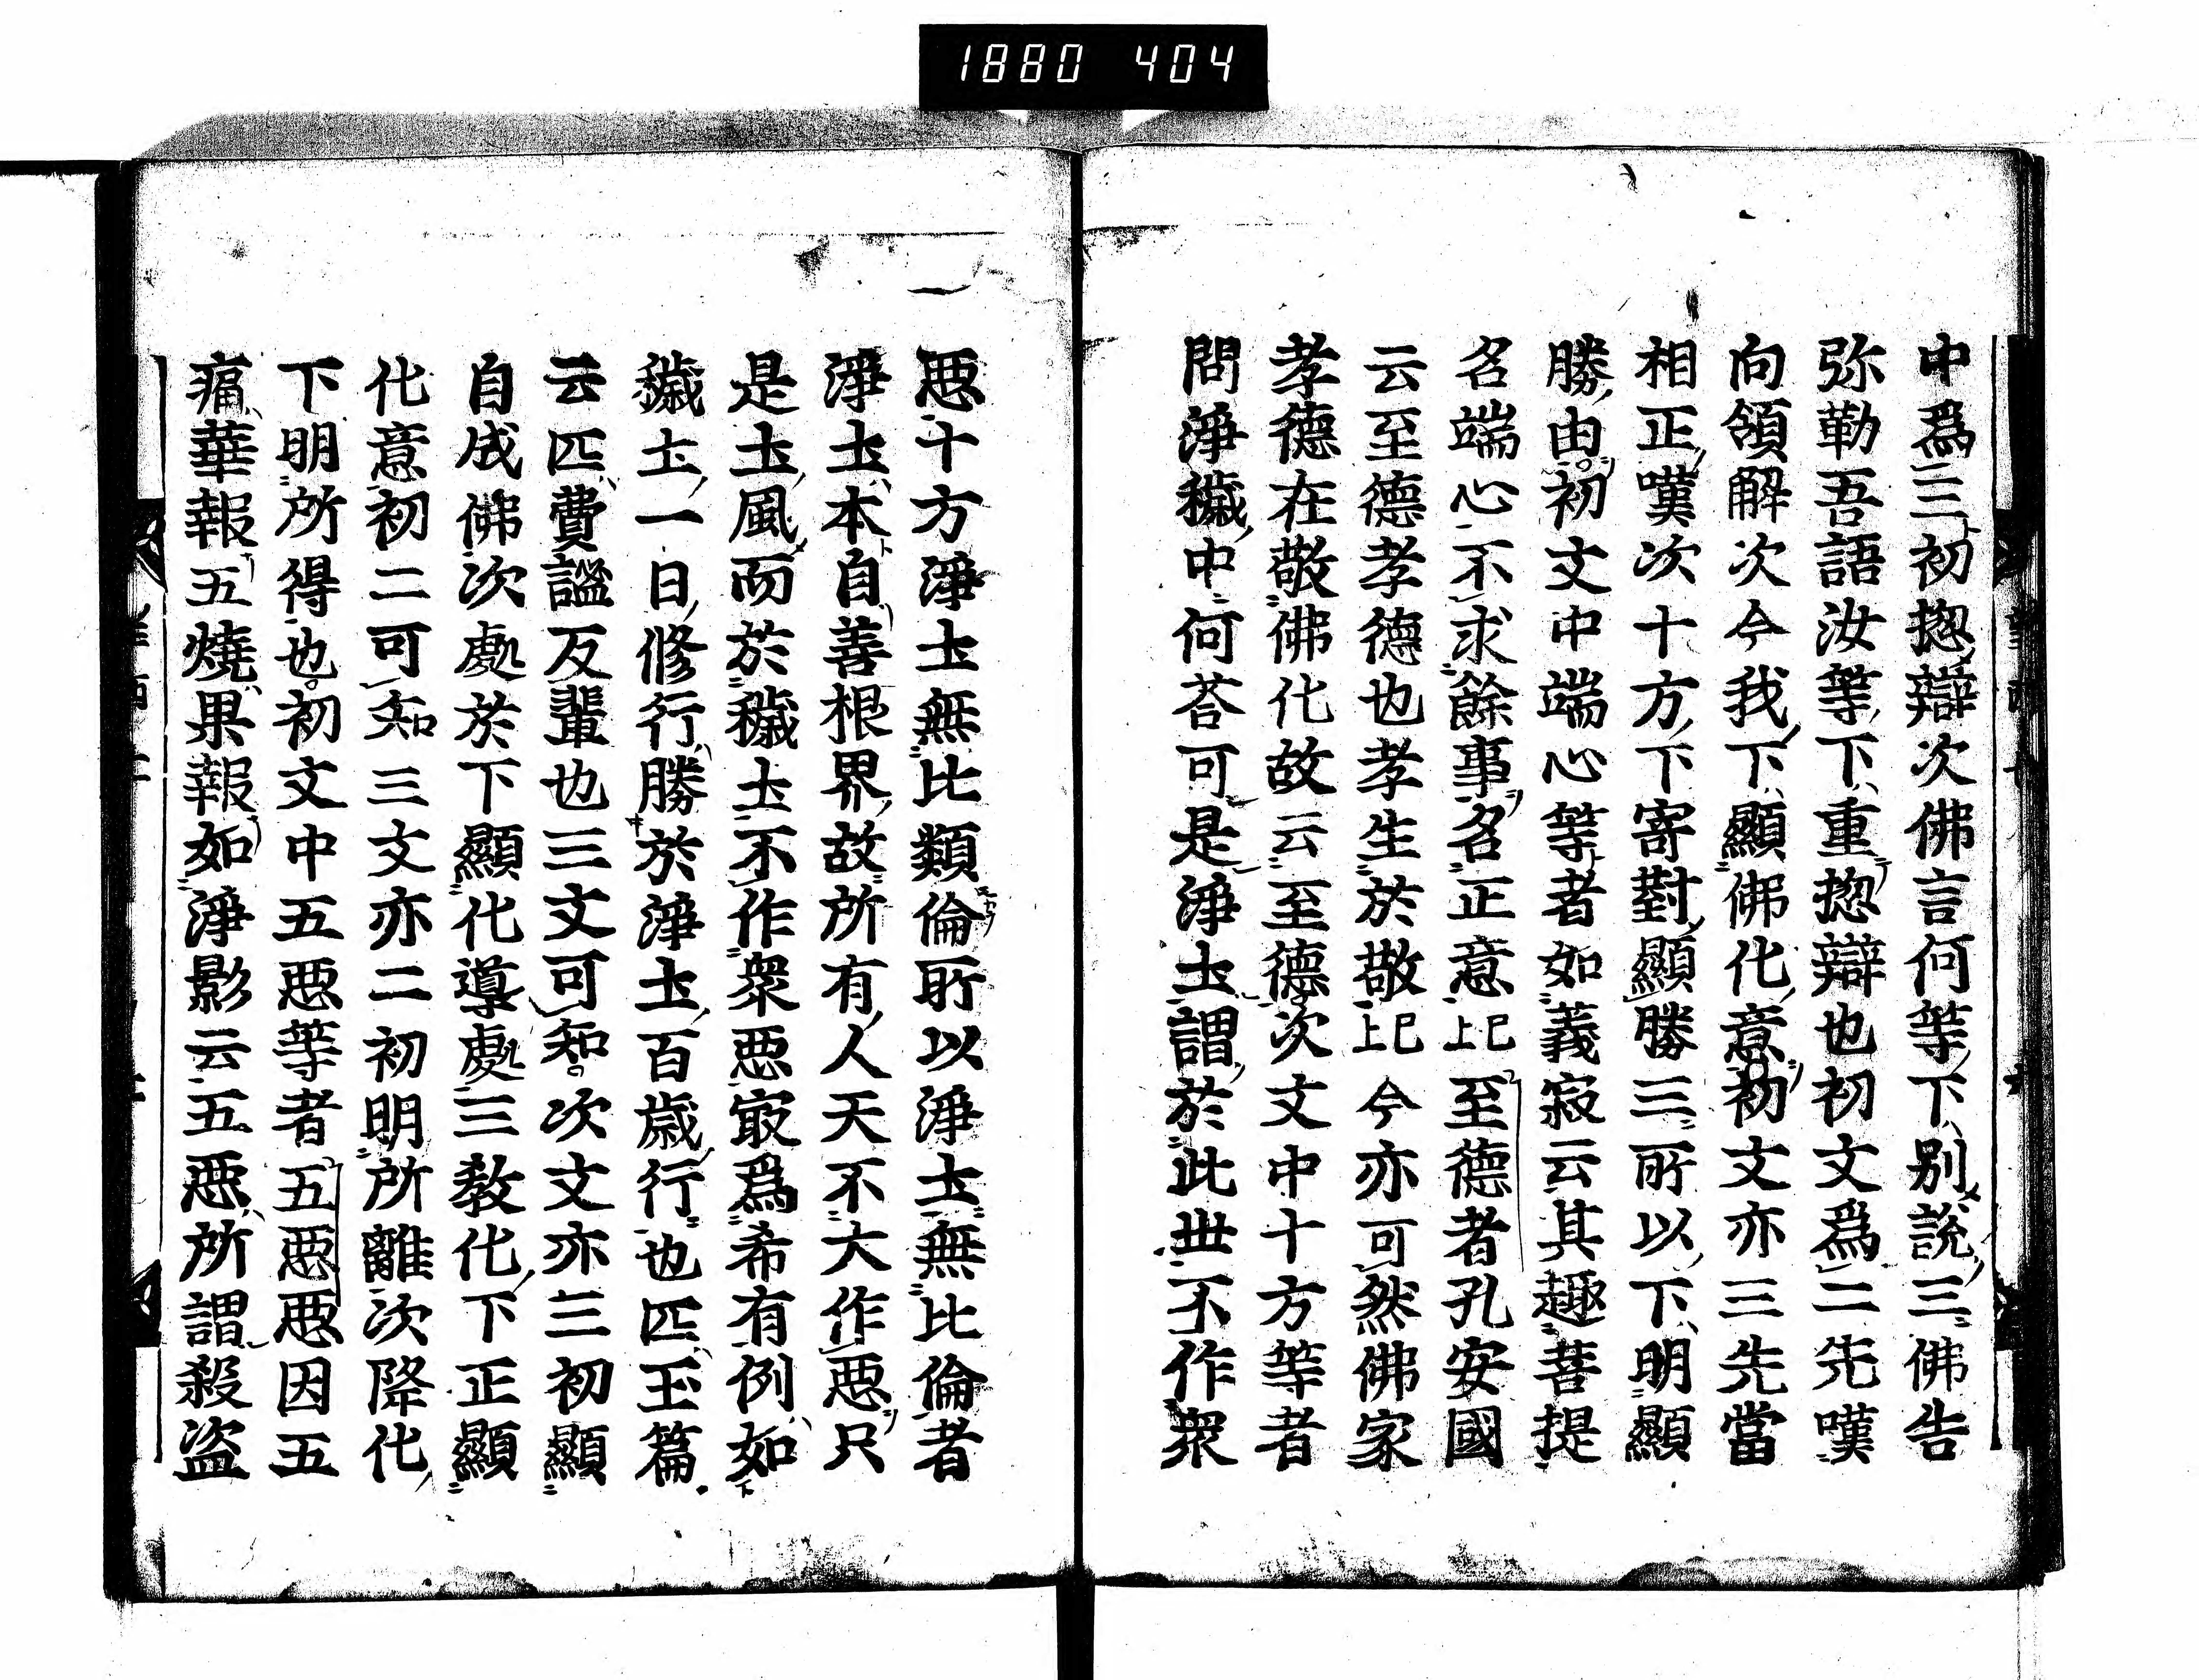 1880 404
中爲三初揔辯次佛言何等下別說三佛告
弥勒吾語汝等下重揔辯也初文爲二先嘆
向領解次今我下顯佛化意初文亦三先當
相正嘆次十方下寄對顯勝三所以下明顯
勝由初文中端心等者如義寂云其趣菩提
名端心不求餘事名正意已上至德者孔安國
云至德孝德也孝生於敬已上今亦可然佛家
孝德在敬佛化故云至德次文中十方等者
問淨穢中何荅可是淨土謂於此世不作衆
惡十方淨土無比類倫所以淨土無比倫者
淨土本自善根界故所有人天不大作惡只
是土風而於穢土不作衆惡㝡爲希有例如
穢土一日修行勝於淨土百歲行也匹玉篇
云匹費謐反輩也三文可知次文亦三初顯
自成佛次處於下顯化導處三教化下正顯
化意初二可知三文亦二初明所離次降化
下明所得也初文中五惡等者五惡惡因五
痛華報五燒果報如淨影云五惡所謂殺盜